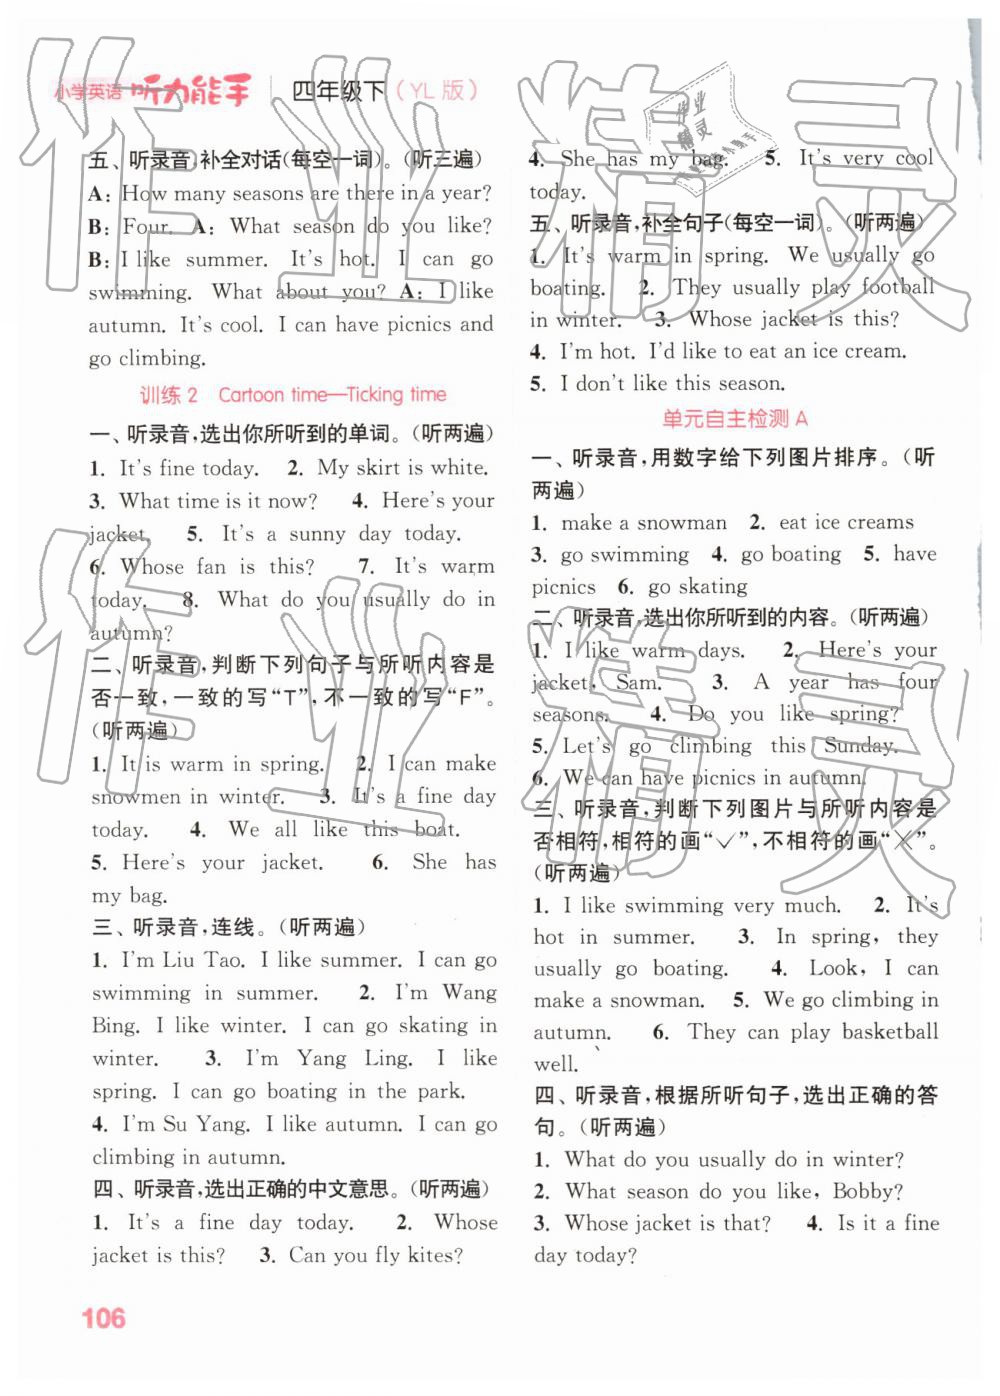 小学英语 听力能手 四年级下（YL版）
五、听录音,补全对话(每空一词)。(听三遍)
A: How many seasons are there in a year?
B: Four. A: What season do you like?
B: I like summer. It's hot. I can go
swimming. What about you? A: I like
autumn. It's cool. I can have picnics and
go climbing.
训练2 Cartoon time—Ticking time
一、听录音,选出你所听到的单词。(听两遍)
1. It's fine today. 2. My skirt is white.
3. What time is it now? 4. Here's your
jacket. 5. It's a sunny day today.
6. Whose fan is this? 7. It's warm
today. 8. What do you usually do in
autumn?
二、听录音,判断下列句子与所听内容是
否一致,一致的写“T”,不一致的写“F”。
(听两遍)
1. It is warm in spring. 2. I can make
snowmen in winter. 3. It's a fine day
today. 4. We all like this boat.
5. Here's your jacket. 6. She has
my bag.
三、听录音,连线。(听两遍)
1. I'm Liu Tao. I like summer. I can go
swimming in summer. 2. I'm Wang
Bing. I like winter. I can go skating in
winter. 3. I'm Yang Ling. I like
spring. I can go boating in the park.
4. I'm Su Yang. I like autumn. I can go
climbing in autumn.
四、听录音,选出正确的中文意思。(听两遍)
1. It's a fine day today. 2. Whose
jacket is this? 3. Can you fly kites?
4. She has my bag. 5. It's very cool
today.
五、听录音,补全句子(每空一词)。(听两遍)
1. It's warm in spring. We usually go
boating. 2. They usually play football
in winter. 3. Whose jacket is this?
4. I'm hot. I'd like to eat an ice cream.
5. I don't like this season.
单元自主检测A
一、听录音,用数字给下列图片排序。(听
两遍)
1. make a snowman 2. eat ice creams
3. go swimming 4. go boating 5. have
picnics 6. go skating
二、听录音,选出你所听到的内容。(听两遍)
1. I like warm days. 2. Here's your
jacket, Sam. 3. A year has four
seasons. 4. Do you like spring?
5. Let's go climbing this Sunday.
6. We can have picnics in autumn.
三、听录音,判断下列图片与所听内容是
否相符,相符的画“✓”,不相符的画“✕”。
(听两遍)
1. I like swimming very much. 2. It's
hot in summer. 3. In spring, they
usually go boating. 4. Look, I can
make a snowman. 5. We go climbing in
autumn. 6. They can play basketball
well.
四、听录音,根据所听句子,选出正确的答
句。(听两遍)
1. What do you usually do in winter?
2. What season do you like, Bobby?
3. Whose jacket is that? 4. Is it a fine
day today?
106
作业精灵
作业精灵